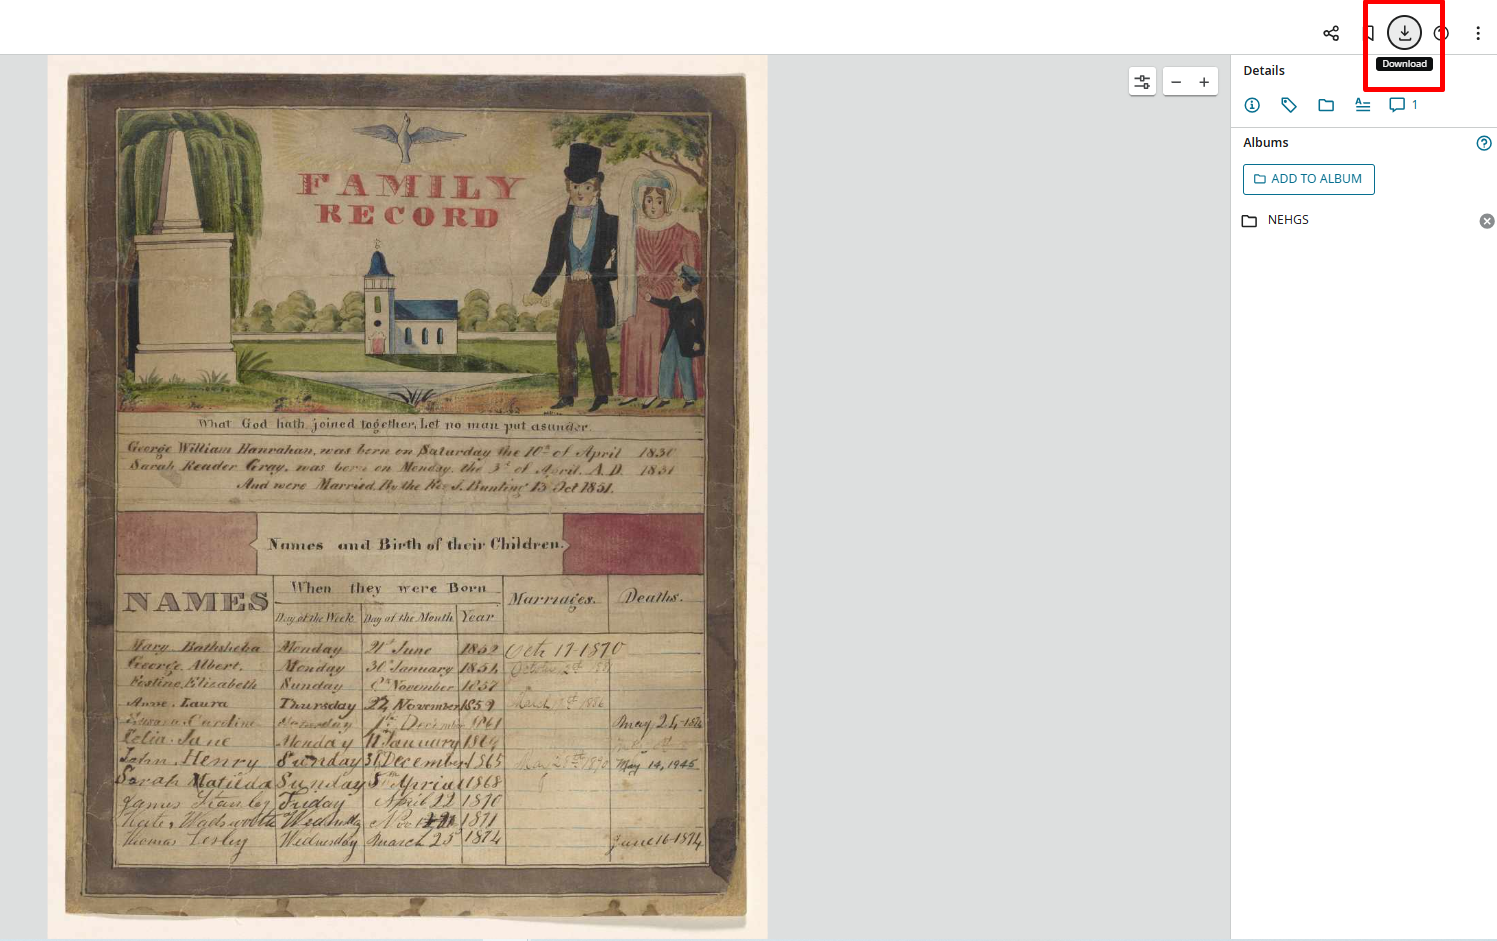 Download
Details
1
Albums
ADD TO ALBUM
NEHGS
FAMILY
RECORD
What God hath joined together, Let no man put asunder.
George William Hanrahan, was born on Saturday the 10th of April 1830
Sarah Reader Gray, was born on Monday, the 3d of April, A.D. 1831
And were Married By the Rev J. Bunting 13 Oct 1851.
Names and Birth of their Children.
NAMES When they were Born Marriages. Deaths.
Day of the Week Day of the Month Year
Mary Bathsheba Monday 21st June 1852 Oct 17-1870
George Albert. Monday 30th January 1854 October
Elizabeth Sunday November 1857
Anne. Laura Thursday 22 November 1859 March 1886
Caroline December 1861 May 24-
Celia. Jane Monday 11 January 1864
John. Henry Sunday 31 December 1865 May 14, 1945
Sarah Matilda Sunday 5th April 1868
James Stanley Friday April 22 1870
Kate, Wadsworth Wednesday Nov 1871
Thomas Wednesday March 25 1874 June 16-1874